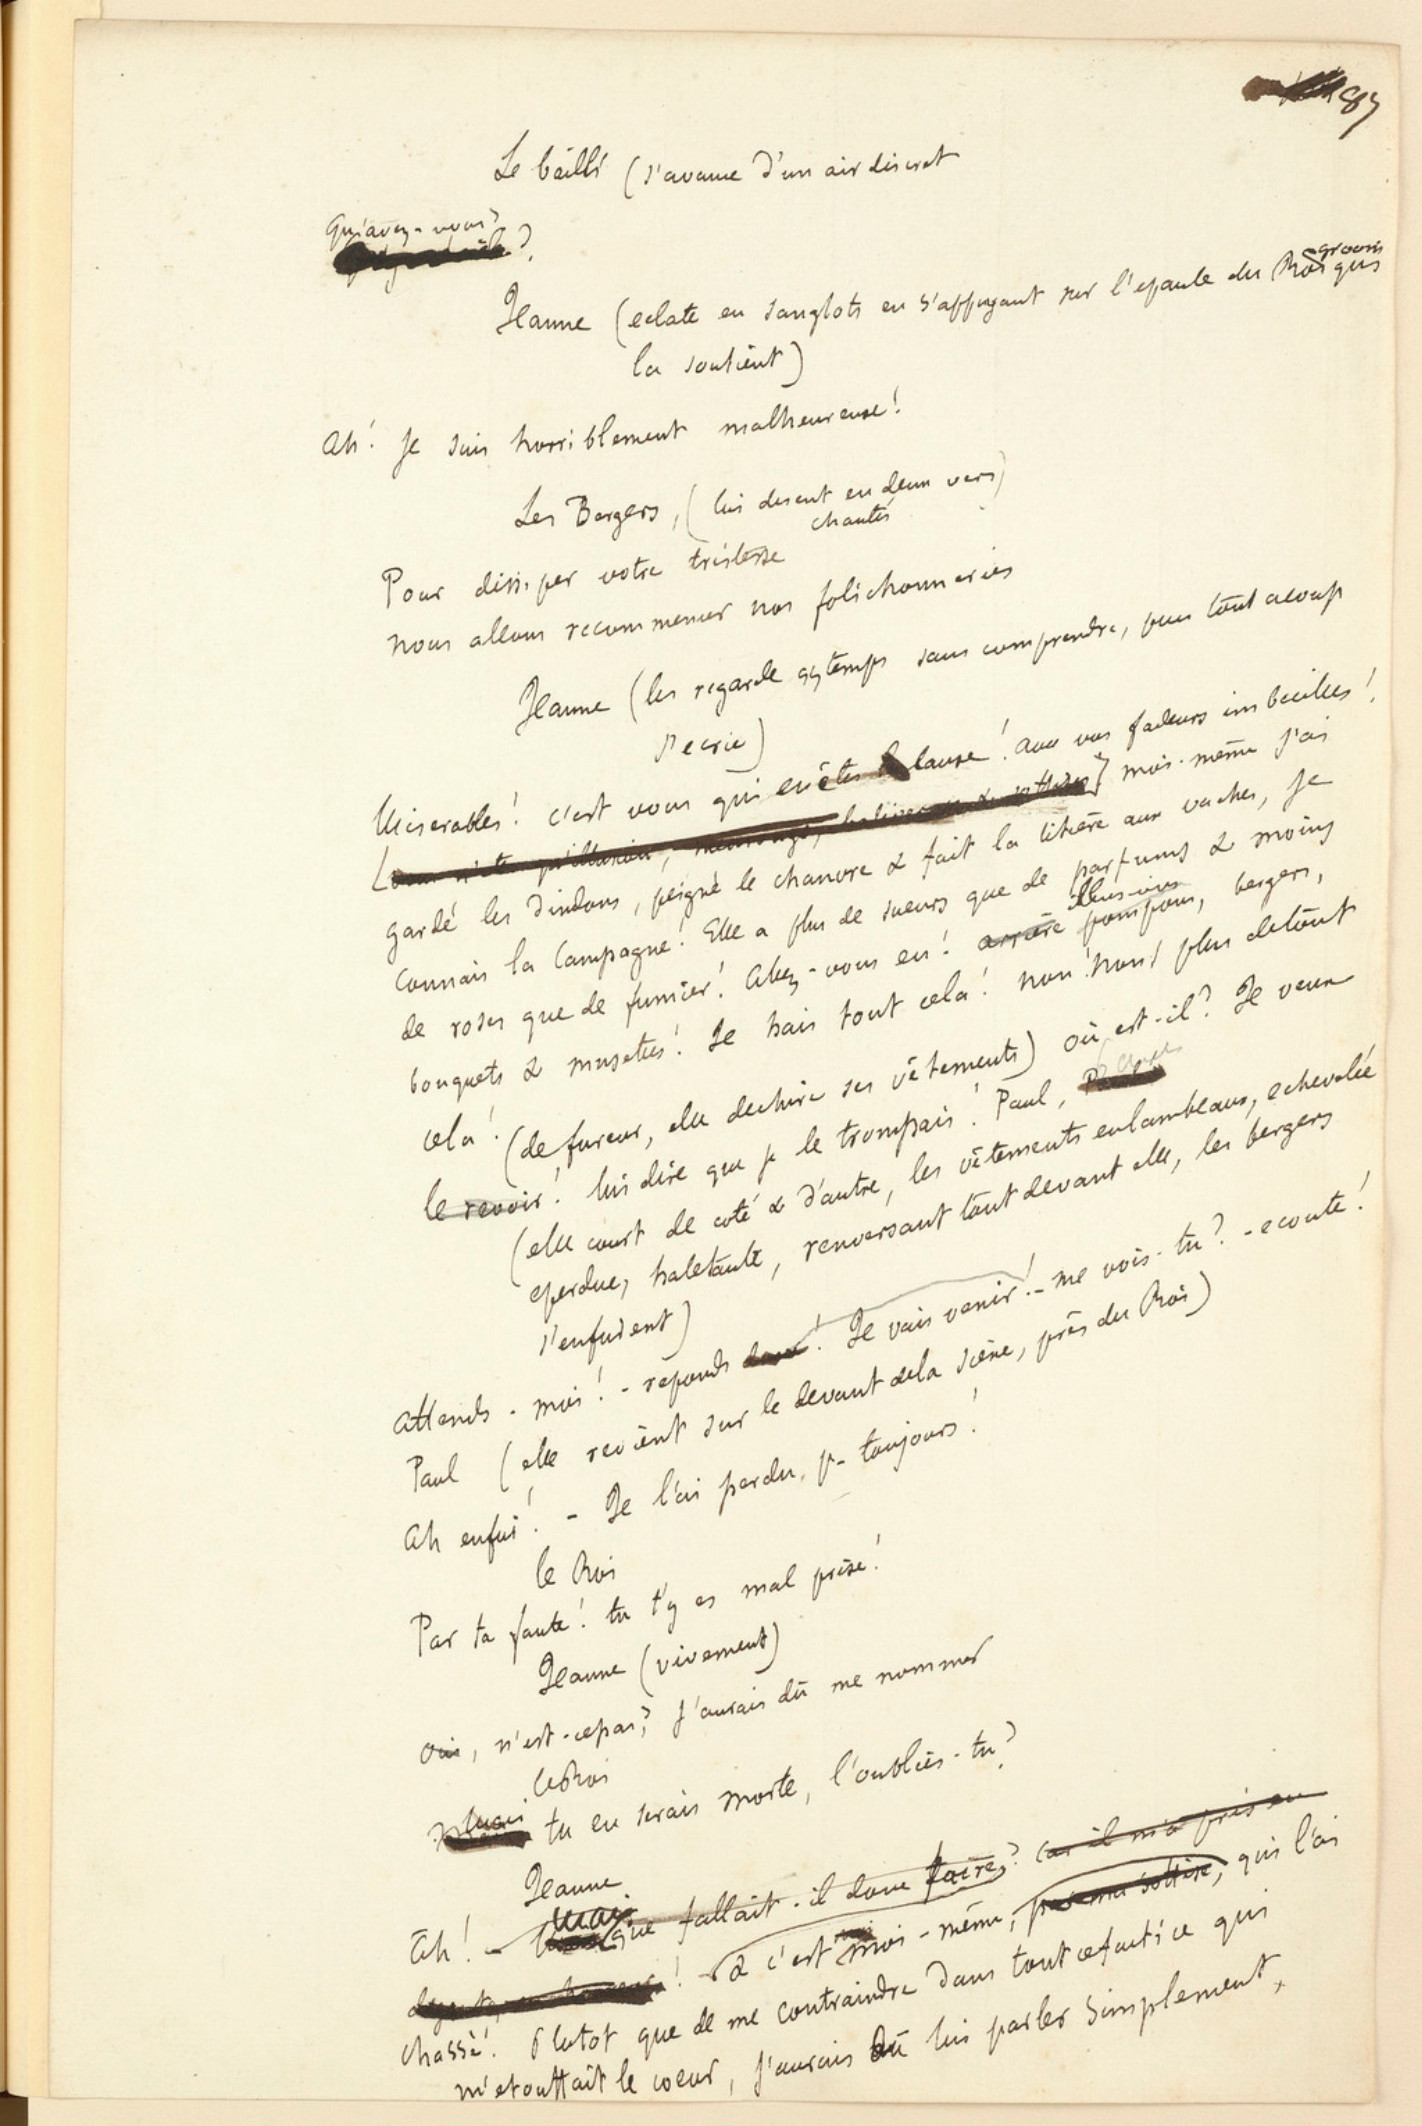 89
Le bailli (s'avance d'un air discret
Qu'avez-vous?
?
grooms
Jeanne (eclate en sanglots en s'appuyant sur l'epaule du Roi qui
la soutient)
Ah! je suis horriblement malheureuse!
Les Bergers, (lui disent en deux vers)
chantés
Pour dissiper votre tristesse
nous allons recommencer nos folichonneries
Jeanne (les regarde qq temps sans comprendre, puis tout acoup
s'ecrie)
Miserables! c'est vous qui en êtes la cause! avec vos fadeurs imbeciles!
moi-même j'ai
gardé les dindons, peigné le chanvre & fait la litière aux vaches, je
connais la Campagne! Elle a plus de sueurs que de parfums & moins
illusions
de roses que de fumier! allez-vous en! arrière pompons, bergers,
bouquets & musettes! Je hais tout cela! non! non! plus detout
cela! (de fureur, elle dechire ses vêtements) où est-il? Je veux
le revoir! lui dire que je le trompais! Paul,
(elle court de coté & d'autre, les vêtements enlambeaux, echevelée
eperdue, haletante, renversant tout devant elle, les bergers
s'enfuient)
attends-moi! - reponds donc! Je vais venir! - me vois-tu? - ecoute!
Paul (elle revient sur le devant dela scène, près du Roi)
Ah enfui! - Je l'ai perdu, pr toujours!
le Roi
Par ta faute! tu t'y es mal prise!
Jeanne (vivement)
oui, n'est-cepas? j'aurais dû me nommer
le Roi
Mais
tu en serais morte, l'oublies-tu?
Jeanne
Mais
Ah! - que fallait-il donc faire? car il m'a pris en
! - & c'est moi-même, par ma sottise, qui l'ai
chassé! Plutot que de me contraindre dans tout cefactice qui
m'etouffait le coeur, j'aurais dû lui parler Simplement,